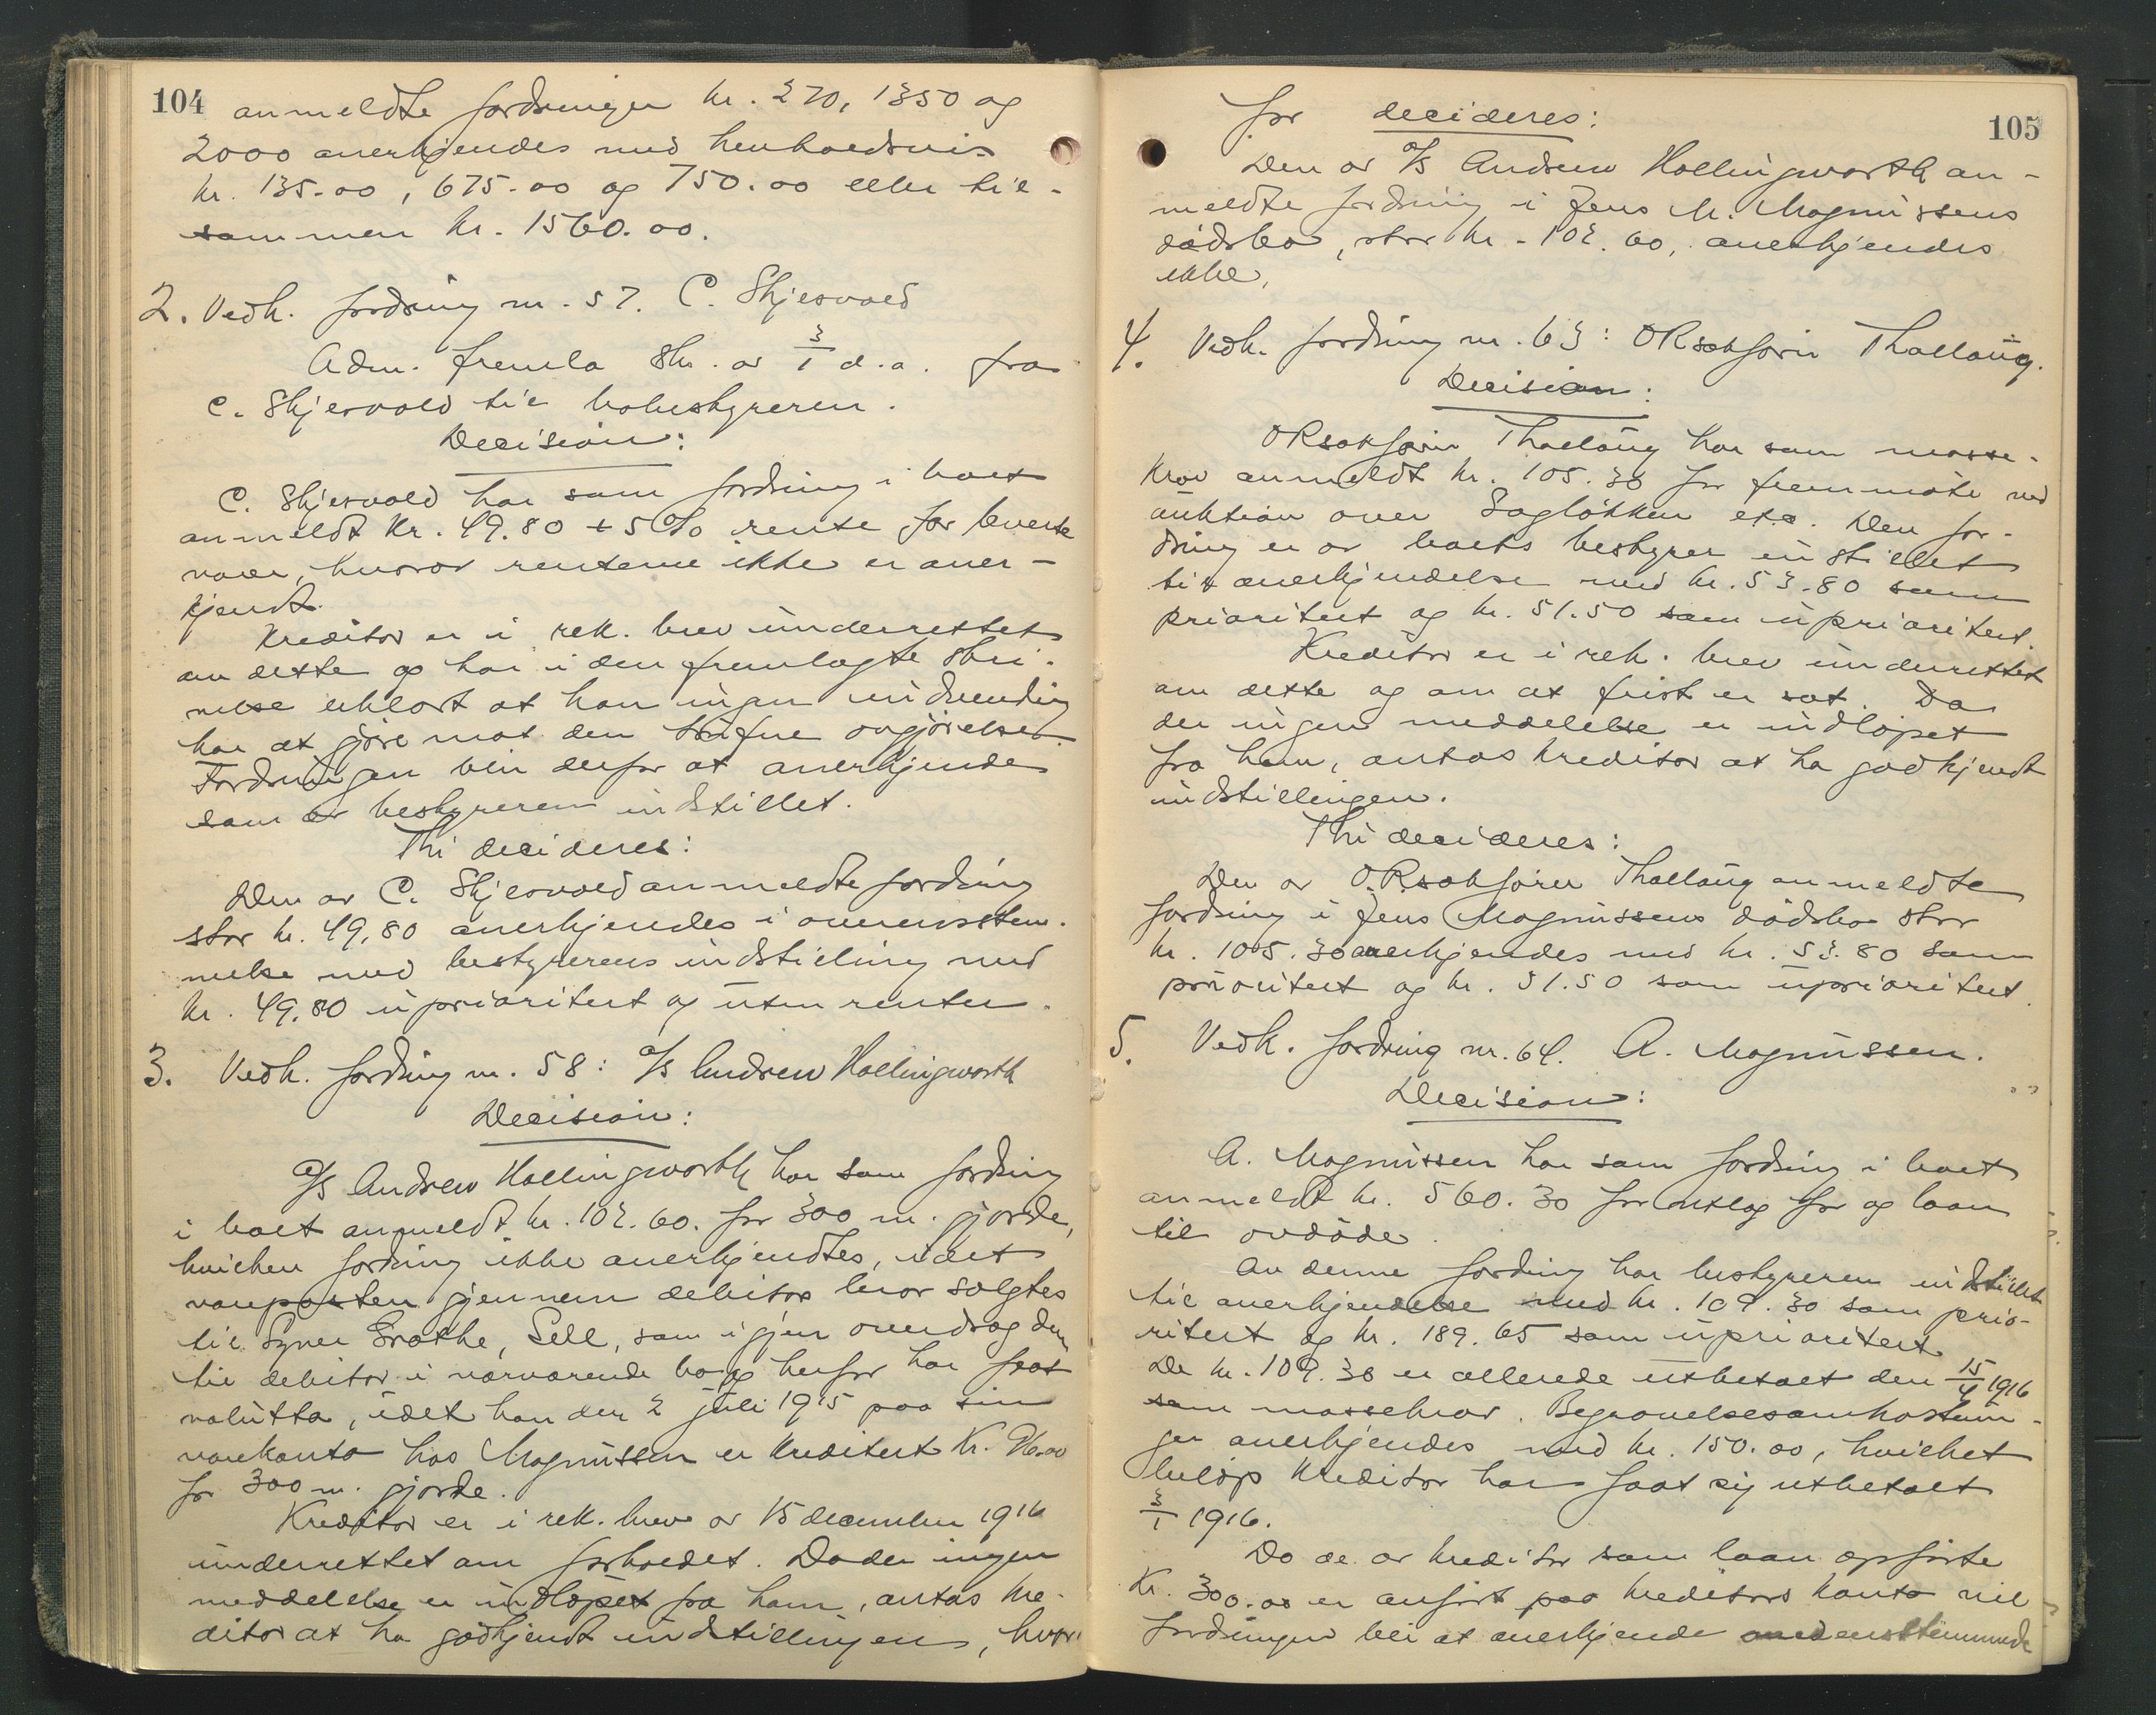 104
anmeldte fordringer kr. 270, 1350 og
2000 anerkjendes med henholdsvis
kr. 135.00, 675.00 og 750.00 eller til-
sammen kr. 1560.00.
2. Vedk. fordring nr. 57. C. Skjesvold
Adm. fremla skr. av 3/1 d.a. fra
C. Skjesvold til bobestyreren.
Decision:
C. Skjesvold har som fordring i boet
anmeldt kr. 49.80 + 5% rente for leverte
varer, hvorav renterne ikke er aner-
kjendt.
Kreditor er i rek. brev underrettet
om dette og har i den fremlagte skri-
velse erklært at han ingen indvending
har at gjøre mot den trufne avgjørelse.
Fordringen blir derfor at anerkjende
som av bestyreren indstillet.
Thi decideres:
Den av C. Skjesvold anmeldte fordring
stor kr. 49,80 anerkjendes i overensstem-
melse med bestyrerens indstilling med
kr. 49,80 uprioritert og uten renter.
3. Vedk. fordring nr. 58: A/S Andrew Hollingworth
Decision:
A/S Andrew Hollingworth har som fordring
i boet anmeldt kr. 102.60. for 300 m. gjorde,
hvilken fordring ikke anerkjendtes, idet
vareposten gjennem debitors bror solgtes
til Syver Grøthe, Sell, som igjen overdrog den
til debitor i nærværende bo og herfor har faat
valutta, idet han den 2 juli 1915 paa sin
varekonto hos Magnussen er kreditert kr. 96.00
for 300 m. gjorde.
Kreditor er i rek. brev av 15 december 1916
underrettet om forholdet. Da der ingen
meddelelse er indløpet fra ham, antas kre-
ditor at ha godkjendt indstillingen, hvor-
105
for decideres:
Den av A/S Andrew Hollingworth an-
meldte fordring i Jens M. Magnussens
dødsbo, stor kr. 102.60, anerkjendes
ikke.
4. Vedk. fordring nr. 63: ORsakfører Thallaug.
Decision:
ORsakfører Thallaug har som masse-
krav anmeldt kr. 105.30 for fremmøte ved
auktion over Sagløkken etc. Den for-
dring er av boets bestyrer indstillet
til anerkjendelse med kr. 53.80 som
prioritert og kr. 51.50 som uprioritert.
Kreditor er i rek. brev underrettet
om dette og om at frist er sat. Da
der ingen meddelelse er indløpet
fra ham, antas kreditor at ha godkjendt
indstillingen.
Thi decideres:
Den av O.R.sakfører Thallaug anmeldte
fordring i Jens Magnussens dødsbo stor
kr. 105.30 anerkjendes med kr. 53.80 som
prioritert og kr. 51.50 som uprioritert.
5. Vedk. fordring nr. 64. A. Magnussen.
Decision:
A. Magnussen har som fordring i boet
anmeldt kr. 560.30 for utlæg for og laan
til avdøde.
Av denne fordring har bestyreren indstillet
til anerkjendelse med kr. 109.30 som prio-
ritert og kr. 189.65 som uprioritert.
De kr. 109.30 er allerede utbetalt den 15/4 1916
som massekrav. Begravelsesomkostnin-
ger anerkjendes med kr. 150.00, hvilket
beløp kreditor har faat sig utbetalt
3/1 1916.
Da de av kreditor som laan opførte
Kr. 300.00 er anført paa kreditors konto vil
fordringen bli at anerkjende